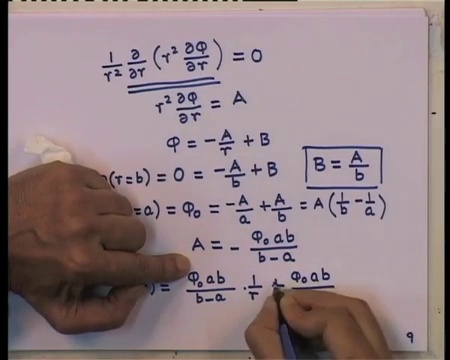 1/r² ∂/∂r (r² ∂φ/∂r) = 0
r² ∂φ/∂r = A
φ = -A/r + B
(r=b) = 0 = -A/b + B
B = A/b
=a) = φ₀ = -A/a + A/b = A(1/b - 1/a)
A = - φ₀ab/b-a
) = φ₀ab/b-a · 1/r φ₀ab
9